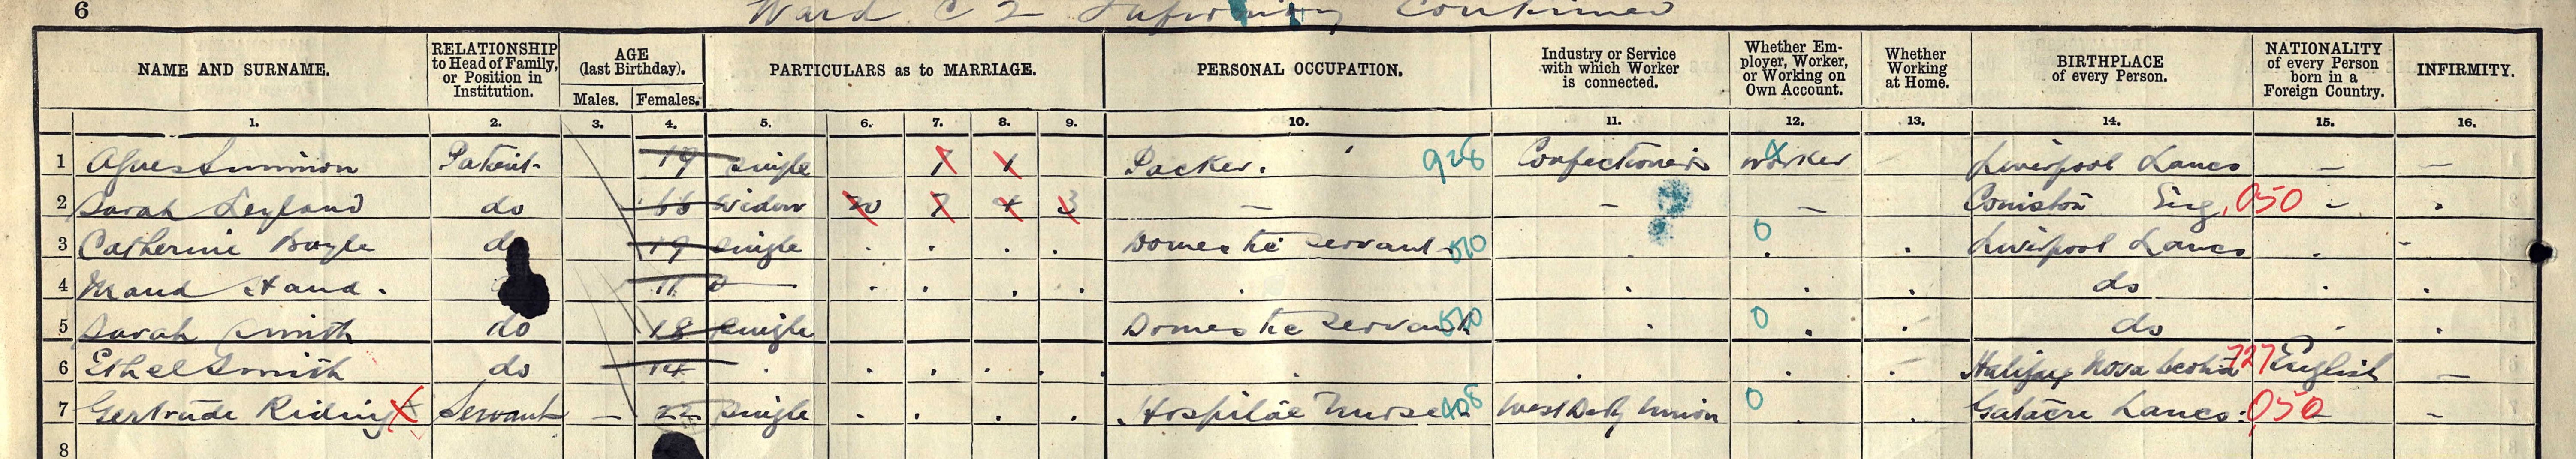 6 Ward C 2 Infirmary Continued
NAME AND SURNAME. RELATIONSHIP to Head of Family, or Position in Institution. AGE (last Birthday). Males. Females. PARTICULARS as to MARRIAGE. PERSONAL OCCUPATION. Industry or Service with which Worker is connected. Whether Employer, Worker, or Working on Own Account. Whether Working at Home. BIRTHPLACE of every Person. NATIONALITY of every Person born in a Foreign Country. INFIRMITY.
1. 2. 3. 4. 5. 6. 7. 8. 9. 10. 11. 12. 13. 14. 15. 16.
1 Agnes Patient 19 Single 7 Packer. 928 Confectioners Worker Liverpool Lancs –
2 Sarah Leyland do 66 Widow 7 4 3 – – – Coniston Eng, 050 -
3 Catherine Boyle do 19 Single Domestic Servant 010 0 Liverpool Lancs -
4 Maud Hand. 11 do
5 Sarah Smith do 18 Single Domestic Servant 010 0 do
6 Ethel Smith do 14 Halifax Nova Scotia 727 English –
7 Gertrude Riding X Servant – 22 Single Hospital Nurse 408 West Derby Union 0 Gatacre Lancs. 050 -
8